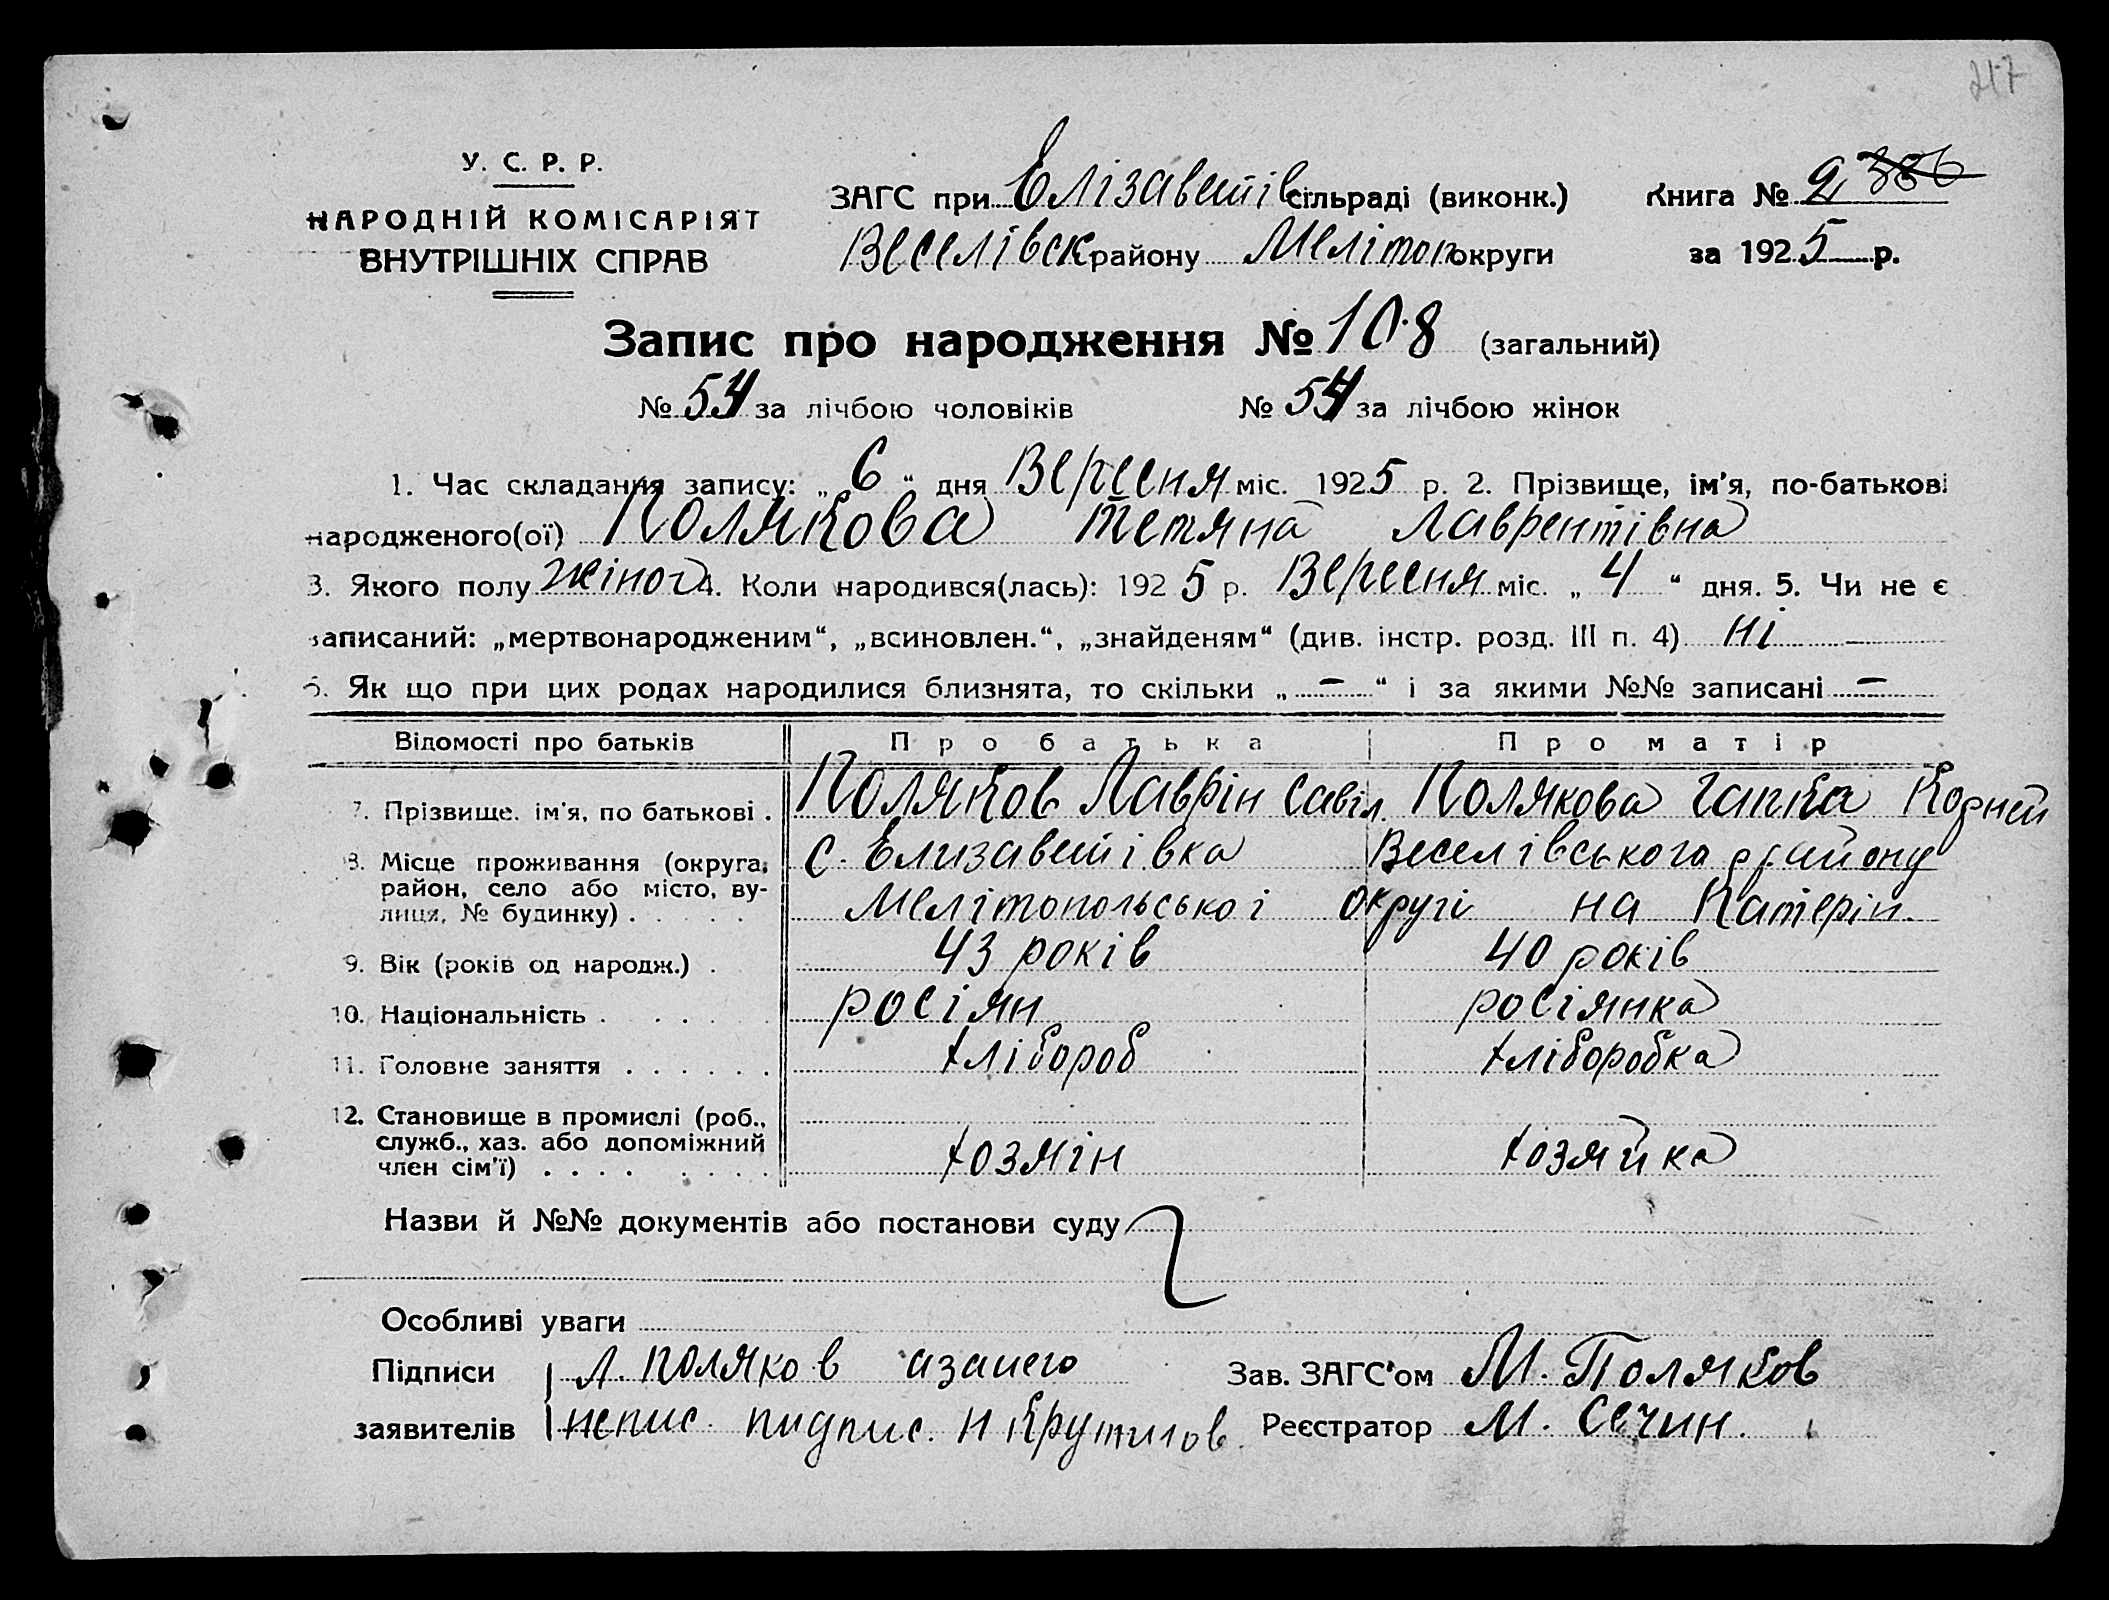 217
У. С. Р. Р.
НАРОДНІЙ КОМІСАРІЯТ
ВНУТРІШНІХ СПРАВ
ЗАГС при Елізаветів сільраді (виконк.)
Веселівськ району Мелітоп округи
Книга № 2 386
за 1925 р.
Запис про народження № 108 (загальний)
№ 54 за лічбою чоловіків № 54 за лічбою жінок
1. Час складання запису: „ 6 “ дня Вересня міс. 1925 р. 2. Прізвище, ім'я, по-батькові
народженого(ої) Полякова Тетяна Лаврентівна
3. Якого полу жіноч 4. Коли народився(лась): 1925 р. Вересня міс. „ 4 “ дня. 5. Чи не є
записаний: „мертвонародженим“, „всиновлен.“, „знайденям“ (див. інстр. розд. III п. 4) ні
6. Як що при цих родах народилися близнята, то скільки „ – “ і за якими №№ записані –
Відомості про батьків Про батька Про матір
7. Прізвище, ім'я, по батькові . Поляков Лаврін Савіл. Полякова Ганка Корній
8. Місце проживання (округа, район, село або місто, вулиця, № будинку) . . . . . с. Елизаветівка Веселівського району
Мелітопольської округі на Катерін.
9. Вік (років од народж.) . 43 років 40 років
10. Національність . . . . росіян росіянка
11. Головне заняття . . . . . . хлібороб хліборобка
12. Становище в промислі (роб., служб., хаз. або допоміжний член сім'ї) . . . . . . . . хозяін хозяйка
Назви й №№ документів або постанови суду
Особливі уваги
Підписи Л. Поляков азанего
заявителів непис. пидпис. Н Крутилов.
Зав. ЗАГС'ом М. Поляков
Реєстратор М. Сечин.